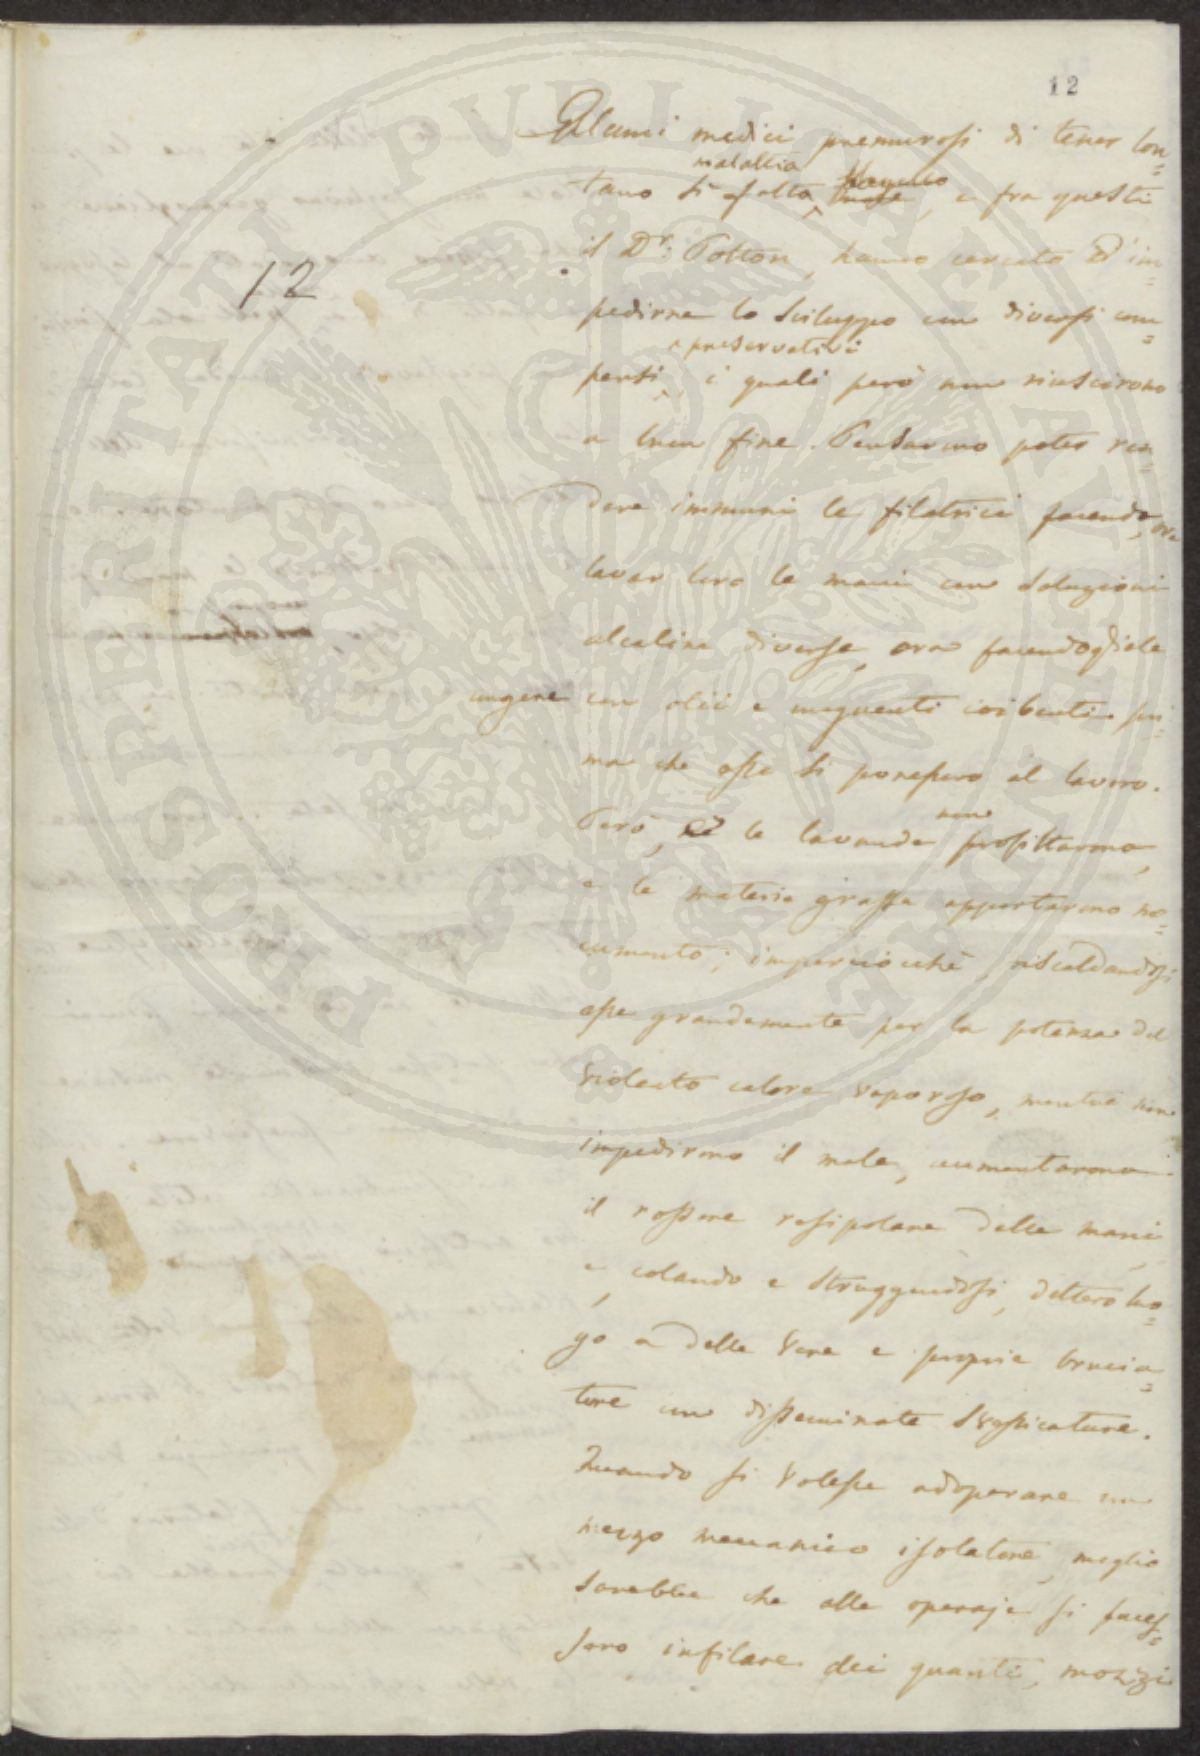 12
Alcuni medici premurosi di tener lon=
malattia
tano sì fatta, e fra questi
12
il Dr. Potton, hanno cercato d'im=
pedirne lo sviluppo con diversi com=
e preservativi
pensi, i quali però non riuscirono
a buon fine. Pensarono poter ren=
dere immuni le filatrici facendo, ora
lavar loro le mani con soluzioni
alcaline diverse, ora facendogliele
ungere con olii e unguenti coibenti pri=
ma che esse si ponessero al lavoro.
Però, le lavande non profittarono,
e le materie grasse apportarono no=
cumento; imperciocchè, riscaldandosi
esse grandemente per la potenza del
violento calore vaporoso, mentre non
impedirono il male, aumentarono
il rossore resipolare delle mani
e, colando e struggendosi, dettero luo=
go a delle vere e proprie brucia=
ture con disseminate vessicature.
Quando si volesse adoperare un
mezzo meccanico isolatore, meglio
sarebbe che alle operaje si faces=
sero infilare dei guanti, mozzi
PROSPERITATI PUBLICAE AUGENDAE